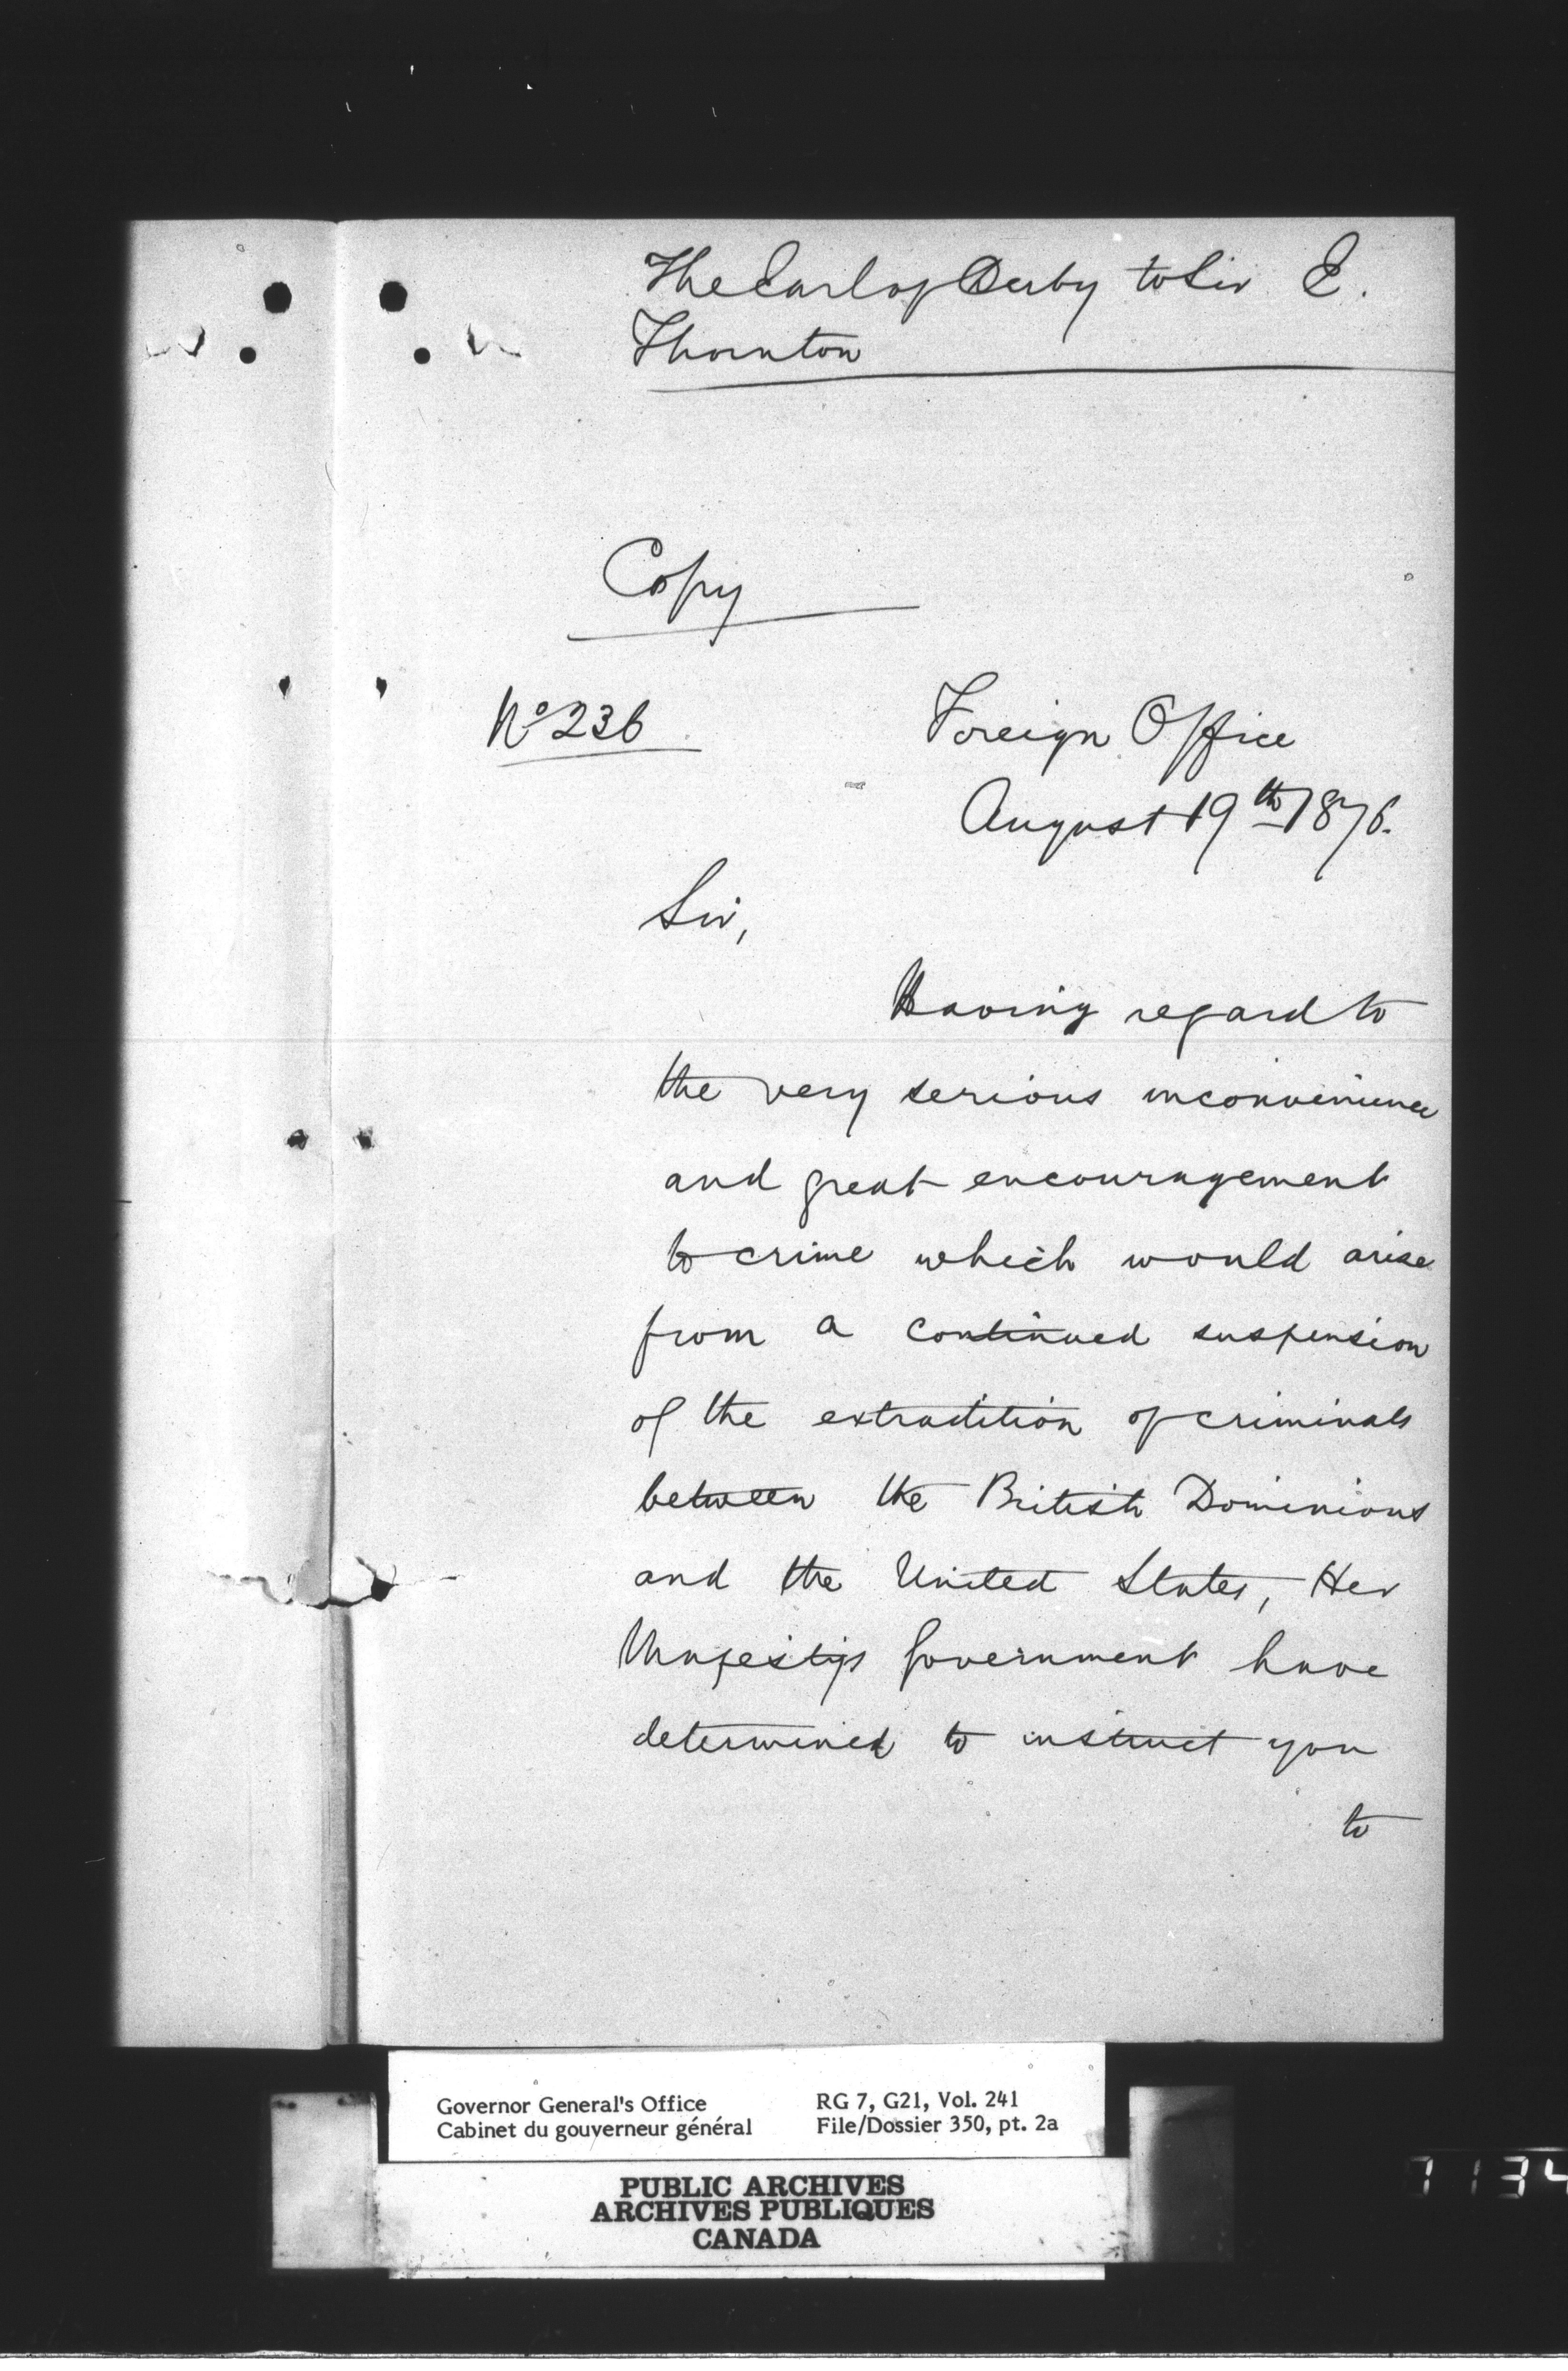 The Earl of Derby to Sir E.
Thornton
Copy
No 236
Foreign Office
August 19th 1876.
Sir,
Having regard to
the very serious inconvenience
and great encouragement
to crime which would arise
from a continued suspension
of the extradition of criminals
between the British Dominions
and the United States, Her
Majesty's Government have
determined to instruct you
to
Governor General's Office
Cabinet du gouverneur général
RG 7, G21, Vol. 241
File/Dossier 350, pt. 2a
PUBLIC ARCHIVES
ARCHIVES PUBLIQUES
CANADA
7134